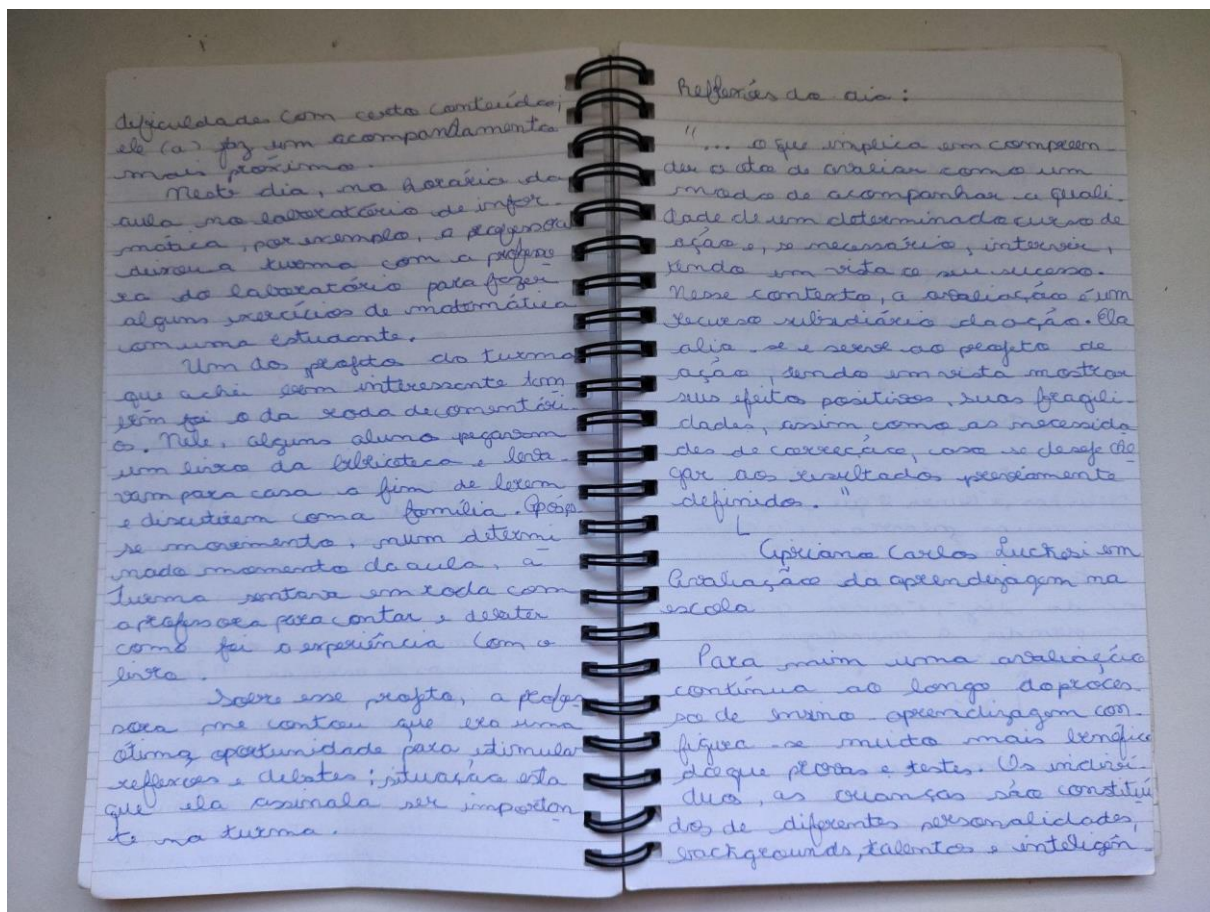 dificuldades com certo conteúdo,
ele (a) faz um acompanhamento
mais próximo.
Neste dia, no horário da
aula no laboratório de infor-
mática, por exemplo, a professora
deixou a turma com a professo
ra do laboratório para fazer
alguns exercícios de matemática
com uma estudante.
Um dos projeto da turma
que achei bem interessante tam
bém foi o da roda de comentári
os. Nele, alguns aluno pegavam
um livro da biblioteca e leva-
vam para casa a fim de lerem
e discutirem com a família. Após es-
se movimento, num determi
nado momento da aula, a
turma sentava em roda com
a professora para contar e debater
como foi a experiência com o
livro.
Sobre esse projeto, a profes
sora me contou que era uma
ótima oportunidade para estimular
reflexões e debates; situação esta
que ela assinala ser importan
te na turma.
Reflexões do dia:
"... o que implica em compreen-
der o ato de avaliar como um
modo de acompanhar a quali-
dade de um determinado curso de
ação e, se necessário, intervir,
tendo em vista o seu sucesso.
Nesse contexto, a avaliação é um
recurso subsidiário da ação. Ela
alia-se e serve ao projeto de
ação, tendo em vista mostrar
seus efeitos positivos, suas fragili-
dades, assim como as necessida
des de correção, caso se deseje che
gar aos resultados previamente
definidos."
Cipriano Carlos Luckesi em
Avaliação da aprendizagem na
escola
Para mim uma avaliação
contínua ao longo do proces-
so de ensino-aprendizagem con-
figura-se muito mais benéfica
do que provas e testes. Os indiví-
duos, as crianças são constituí
dos de diferentes personalidades,
backgrounds, talentos e inteligên-